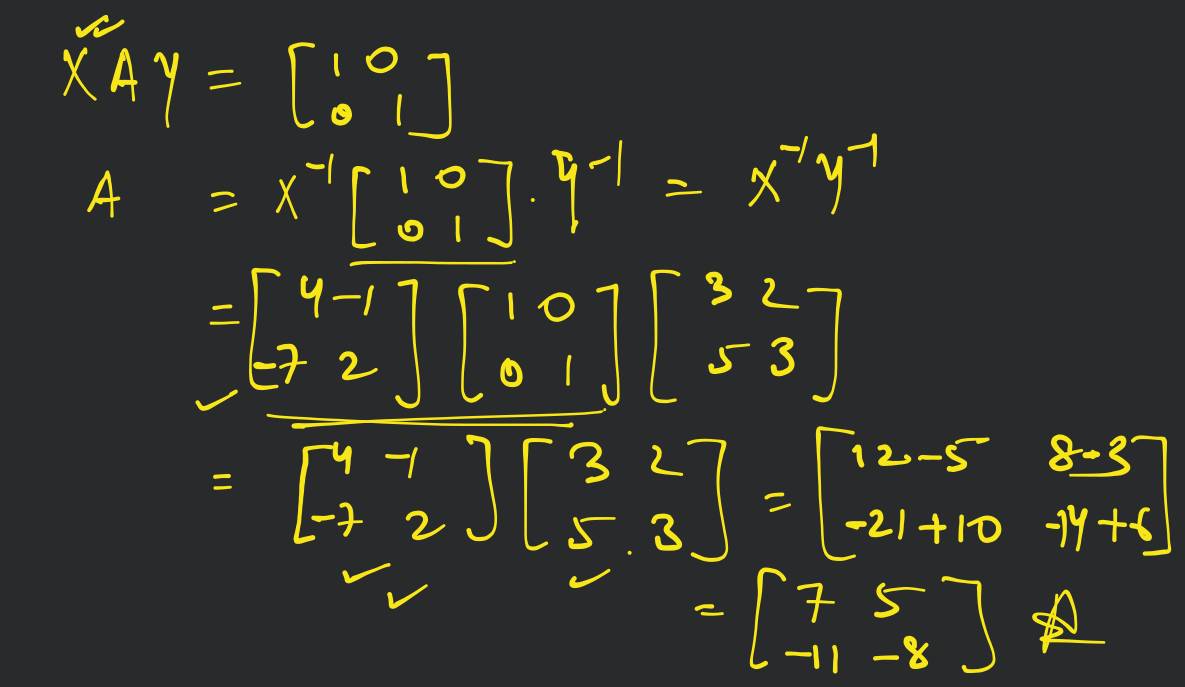 XAY = [1 0
0 1]
A = X⁻¹ [1 0
0 1] . Y⁻¹ = X⁻¹ Y⁻¹
= [4 -1
-7 2] [1 0
0 1] [3 2
5 3]
= [4 -1
-7 2] [3 2
5 . 3] = [12-5 8-3
-21+10 -14+6]
= [7 5
-11 -8] A